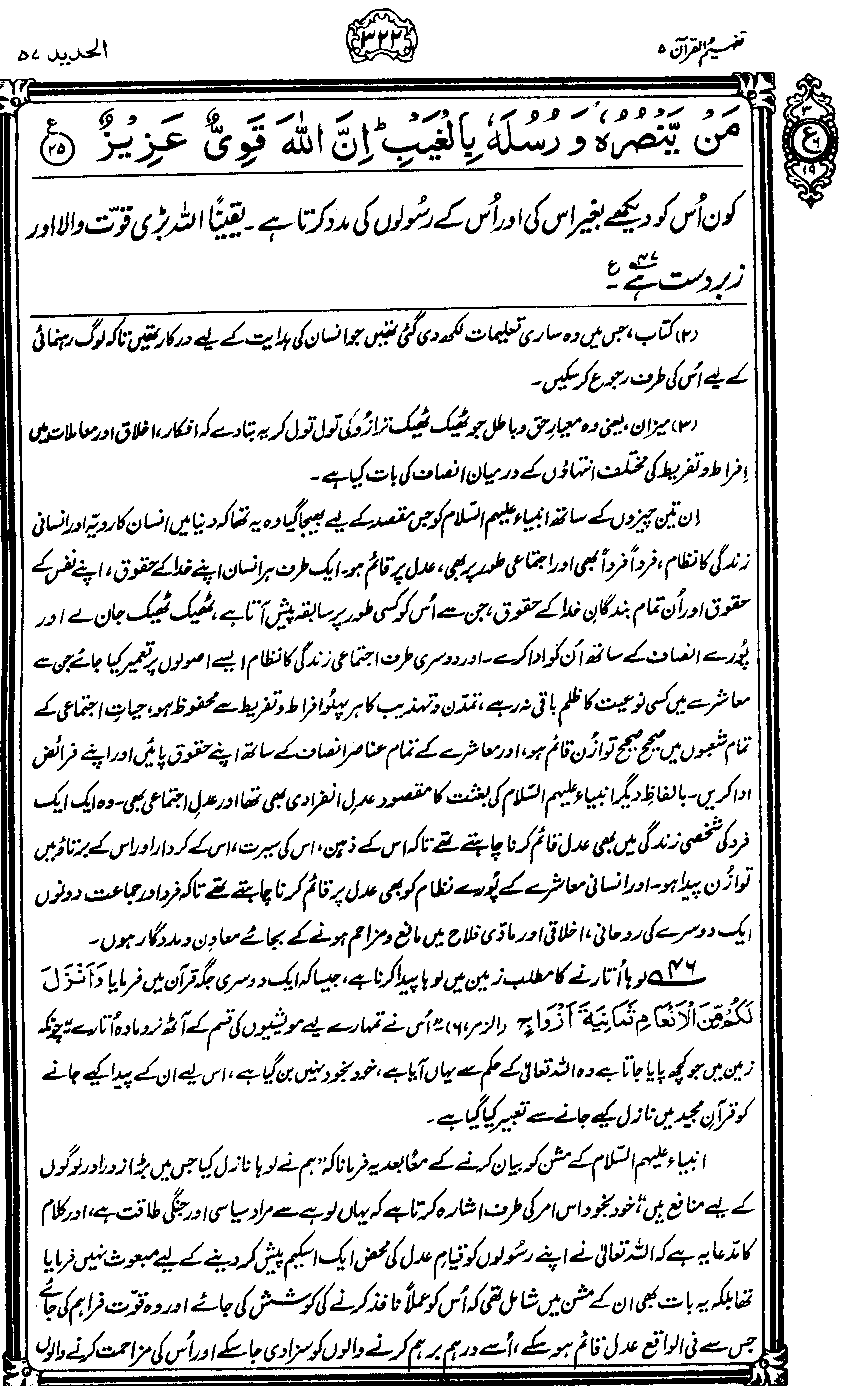 تفہیم القرآن ۵
۳۲۲
الحدید ۵۷
مَنْ يَّنْصُرُهٗ وَرُسُلَهٗ بِالْغَيْبِ ؕ اِنَّ اللّٰهَ قَوِىٌّ عَزِيْزٌ ﴿۲۵﴾ ع
۳
ع ۶
۱۹
کون اُس کو دیکھے بغیر اس کی اور اُس کے رسُولوں کی مدد کرتا ہے۔ یقیناً اللہ بڑی قوّت والا اور
زبردست ہے۴۷۔ ع
(۲) کتاب، جس میں وہ ساری تعلیمات لکھ دی گئی تھیں جو انسان کی ہدایت کے لیے درکار تھیں تاکہ لوگ رہنمائی
کے لیے اُس کی طرف رجوع کر سکیں۔
(۳) میزان، یعنی وہ معیارِ حق و باطل جو ٹھیک ٹھیک ترازو کی تول تول کر یہ بتا دے کہ افکار، اخلاق اور معاملات میں
افراط و تفریط کی مختلف انتہاؤں کے درمیان انصاف کی بات کیا ہے۔
اِن تین چیزوں کے ساتھ انبیاء علیہم السّلام کو جس مقصد کے لیے بھیجا گیا وہ یہ تھا کہ دنیا میں انسان کا رویّہ اور انسانی
زندگی کا نظام، فرداً فرداً بھی اور اجتماعی طور پر بھی، عدل پر قائم ہو۔ ایک طرف ہر انسان اپنے خدا کے حقوق، اپنے نفس کے
حقوق اور اُن تمام بندگانِ خدا کے حقوق، جن سے اُس کو کسی طور پر سابقہ پیش آتا ہے، ٹھیک ٹھیک جان لے اور
پُورے انصاف کے ساتھ اُن کو ادا کرے۔ اور دوسری طرف اجتماعی زندگی کا نظام ایسے اصولوں پر تعمیر کیا جائے جن سے
معاشرے میں کسی نوعیت کا ظلم باقی نہ رہے، تمدّن و تہذیب کا ہر پہلو افراط و تفریط سے محفوظ ہو، حیاتِ اجتماعی کے
تمام شعبوں میں صحیح صحیح توازُن قائم ہو، اور معاشرے کے تمام عناصر انصاف کے ساتھ اپنے حقوق پائیں اور اپنے فرائض
ادا کریں۔ بالفاظِ دیگر انبیاء علیہم السّلام کی بعثت کا مقصود عدلِ انفرادی بھی تھا اور عدلِ اجتماعی بھی۔ وہ ایک ایک
فرد کی شخصی زندگی میں بھی عدل قائم کرنا چاہتے تھے تاکہ اس کے ذہن، اس کی سیرت، اس کے کردار اور اس کے برتاؤ میں
توازُن پیدا ہو۔ اور انسانی معاشرے کے پُورے نظام کو بھی عدل پر قائم کرنا چاہتے تھے تاکہ فرد اور جماعت دونوں
ایک دوسرے کی روحانی، اخلاقی اور مادّی فلاح میں مانع و مزاحم ہونے کے بجائے معاون و مددگار ہوں۔
۴۶؎ لوہا اُتارنے کا مطلب زمین میں لوہا پیدا کرنا ہے، جیسا کہ ایک دوسری جگہ قرآن میں فرمایا وَاَنْزَلَ
لَكُمْ مِّنَ الْاَنْعَامِ ثَمَانِيَةَ اَزْوَاجٍ (الزمر، ۶) ”اُس نے تمہارے لیے مویشیوں کی قسم کے آٹھ نر و مادہ اُتارے“۔ چونکہ
زمین میں جو کچھ پایا جاتا ہے وہ اللہ تعالیٰ کے حکم سے یہاں آیا ہے، خود بخود نہیں بن گیا ہے، اس لیے ان کے پیدا کیے جانے
کو قرآن مجید میں نازل کیے جانے سے تعبیر کیا گیا ہے۔
انبیاء علیہم السّلام کے مشن کو بیان کرنے کے معاً بعد یہ فرمانا کہ ”ہم نے لوہا نازل کیا جس میں بڑا زور اور لوگوں
کے لیے منافع ہیں“، خود بخود اس امر کی طرف اشارہ کرتا ہے کہ یہاں لوہے سے مراد سیاسی اور جنگی طاقت ہے، اور کلام
کا مدّعا یہ ہے کہ اللہ تعالیٰ نے اپنے رسُولوں کو قیامِ عدل کی محض ایک اسکیم پیش کر دینے کے لیے مبعوث نہیں فرمایا
تھا بلکہ یہ بات بھی ان کے مشن میں شامل تھی کہ اُس کو عملاً نافذ کرنے کی کوشش کی جائے اور وہ قوّت فراہم کی جائے
جس سے فی الواقع عدل قائم ہو سکے، اُسے درہم برہم کرنے والوں کو سزا دی جا سکے اور اُس کی مزاحمت کرنے والوں